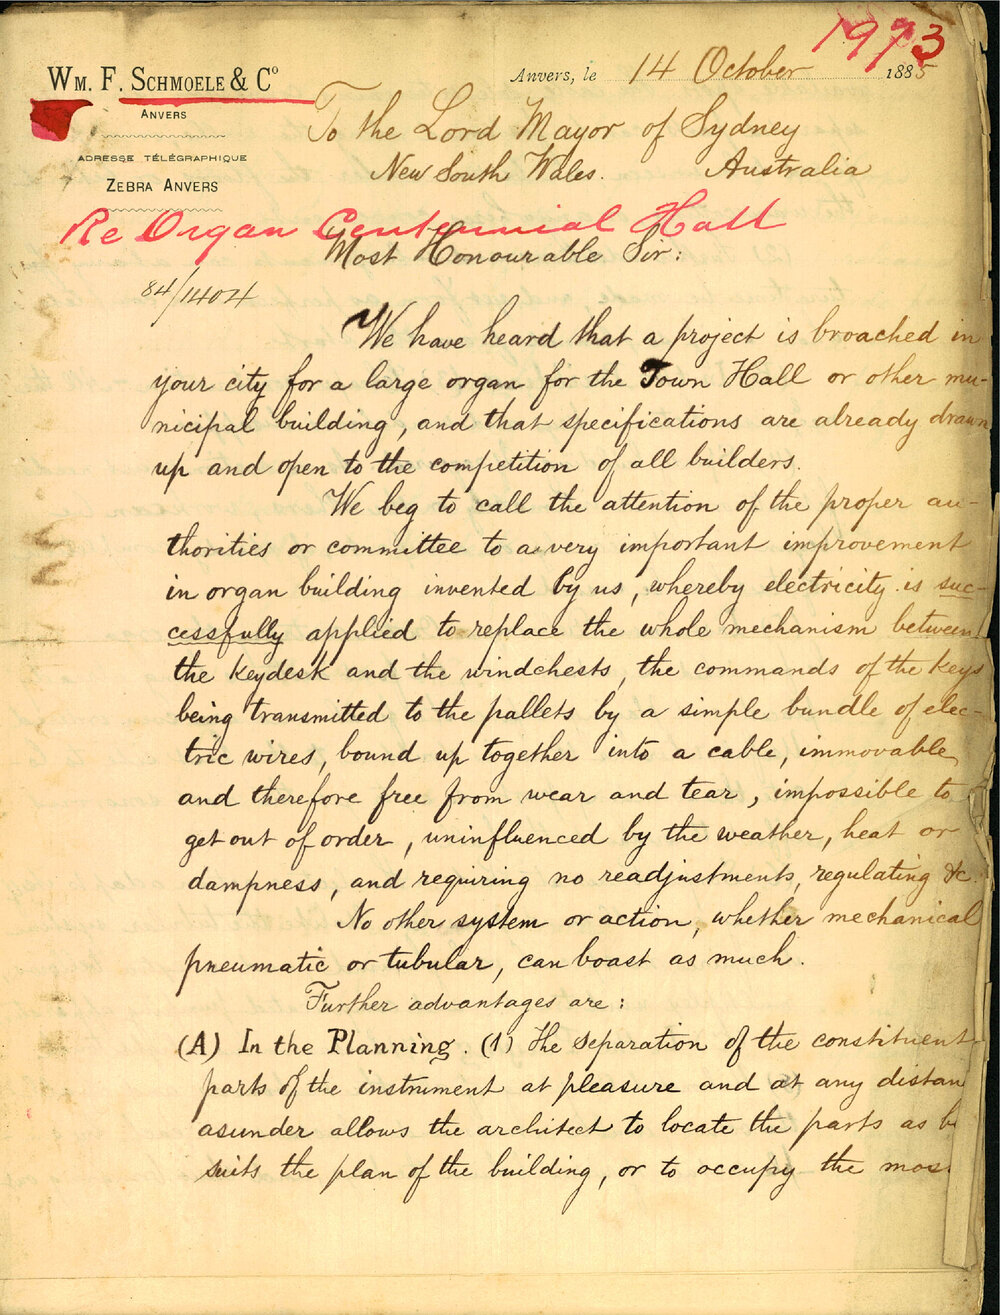 1973
Wm. F. Schmoele & Co
Anvers, le 14 October 1885
Anvers
To the Lord Mayor of Sydney
Adresse Télégraphique
New South Wales. Australia
Zebra Anvers
Re Organ Centennial Hall
Most Honourable Sir:
84/1404
We have heard that a project is broached in
your city for a large organ for the Town Hall or other mu-
nicipal building, and that specifications are already drawn
up and open to the competition of all builders.
We beg to call the attention of the proper au-
thorities or committee to a very important improvement
in organ building invented by us, whereby electricity is suc-
cessfully applied to replace the whole mechanism between
the keydesk and the windchests, the commands of the keys
being transmitted to the pallets by a simple bundle of elec-
tric wires, bound up together into a cable, immovable
and therefore free from wear and tear, impossible to
get out of order, uninfluenced by the weather, heat or
dampness, and requiring no readjustments, regulating &c.
No other system or action, whether mechanical
pneumatic or tubular, can boast as much.
Further advantages are:
(A) In the Planning. (1) The separation of the constituent
parts of the instrument at pleasure and at any distan
asunder allows the architect to locate the parts as b
suits the plan of the building, or to occupy the mos